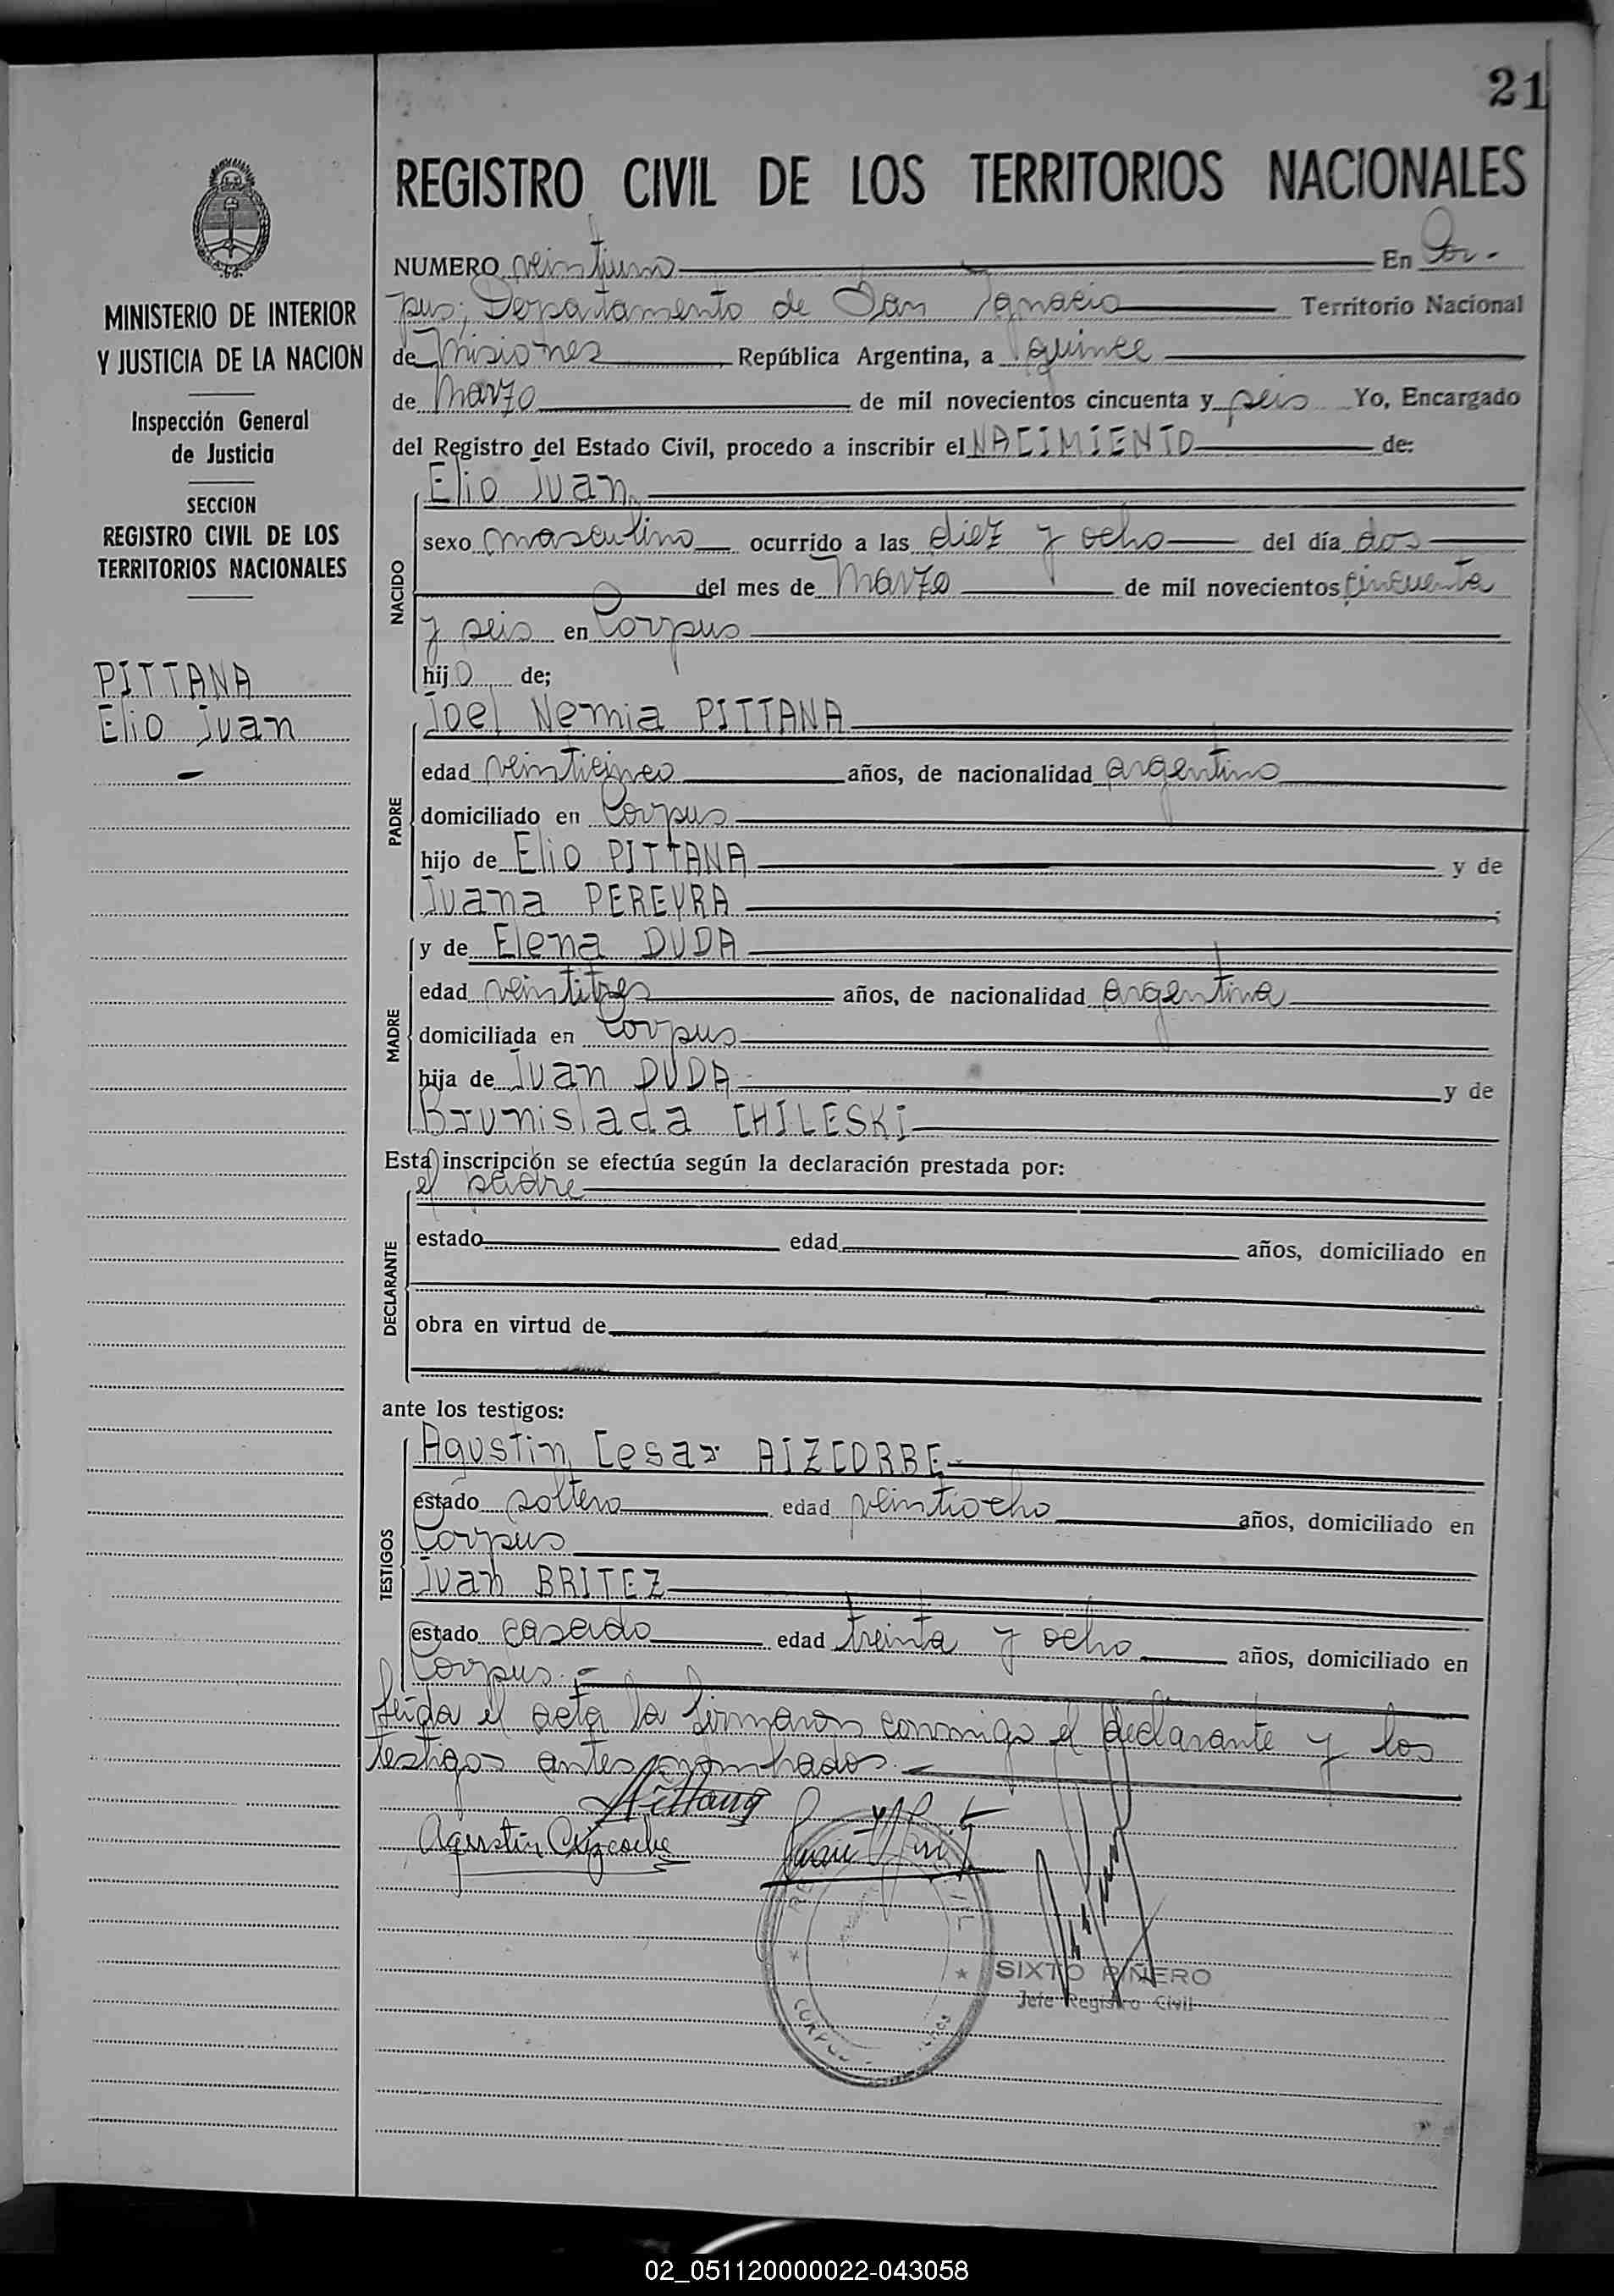 21
REGISTRO CIVIL DE LOS TERRITORIOS NACIONALES
MINISTERIO DE INTERIOR
Y JUSTICIA DE LA NACION
Inspección General
de Justicia
SECCION
REGISTRO CIVIL DE LOS
TERRITORIOS NACIONALES
PITTANA
Elio Juan
NUMERO veintiuno En Cor-
pus, Departamento de San Ignacio Territorio Nacional
de Misiones, República Argentina, a quince
de Marzo de mil novecientos cincuenta y seis Yo, Encargado
del Registro del Estado Civil, procedo a inscribir el NACIMIENTO de:
NACIDO
Elio Juan
sexo masculino ocurrido a las diez y ocho del día dos
del mes de Marzo de mil novecientos cincuenta
y seis en Corpus
hijo de;
PADRE
Joel Nemia PITTANA
edad veinticinco años, de nacionalidad argentino
domiciliado en Corpus
hijo de Elio PITTANA y de
Juana PEREYRA
MADRE
y de Elena DUDA
edad veintitres años, de nacionalidad argentina
domiciliada en Corpus
hija de Juan DUDA y de
Brunislada CHILESKI
Esta inscripción se efectúa según la declaración prestada por:
DECLARANTE
el padre
estado edad años, domiciliado en
obra en virtud de
ante los testigos:
TESTIGOS
Agustin Cesar AIZCORBE
estado soltero edad veintiocho años, domiciliado en
Corpus
Juan BRITEZ
estado casado edad treinta y ocho años, domiciliado en
Corpus.=
Leida el acta la firmaron conmigo el declarante y los
testigos antes nombrados.
Pittana
Agustin Aizcorbe
SIXTO PIÑERO
Jefe Registro Civil
02_051120000022-043058